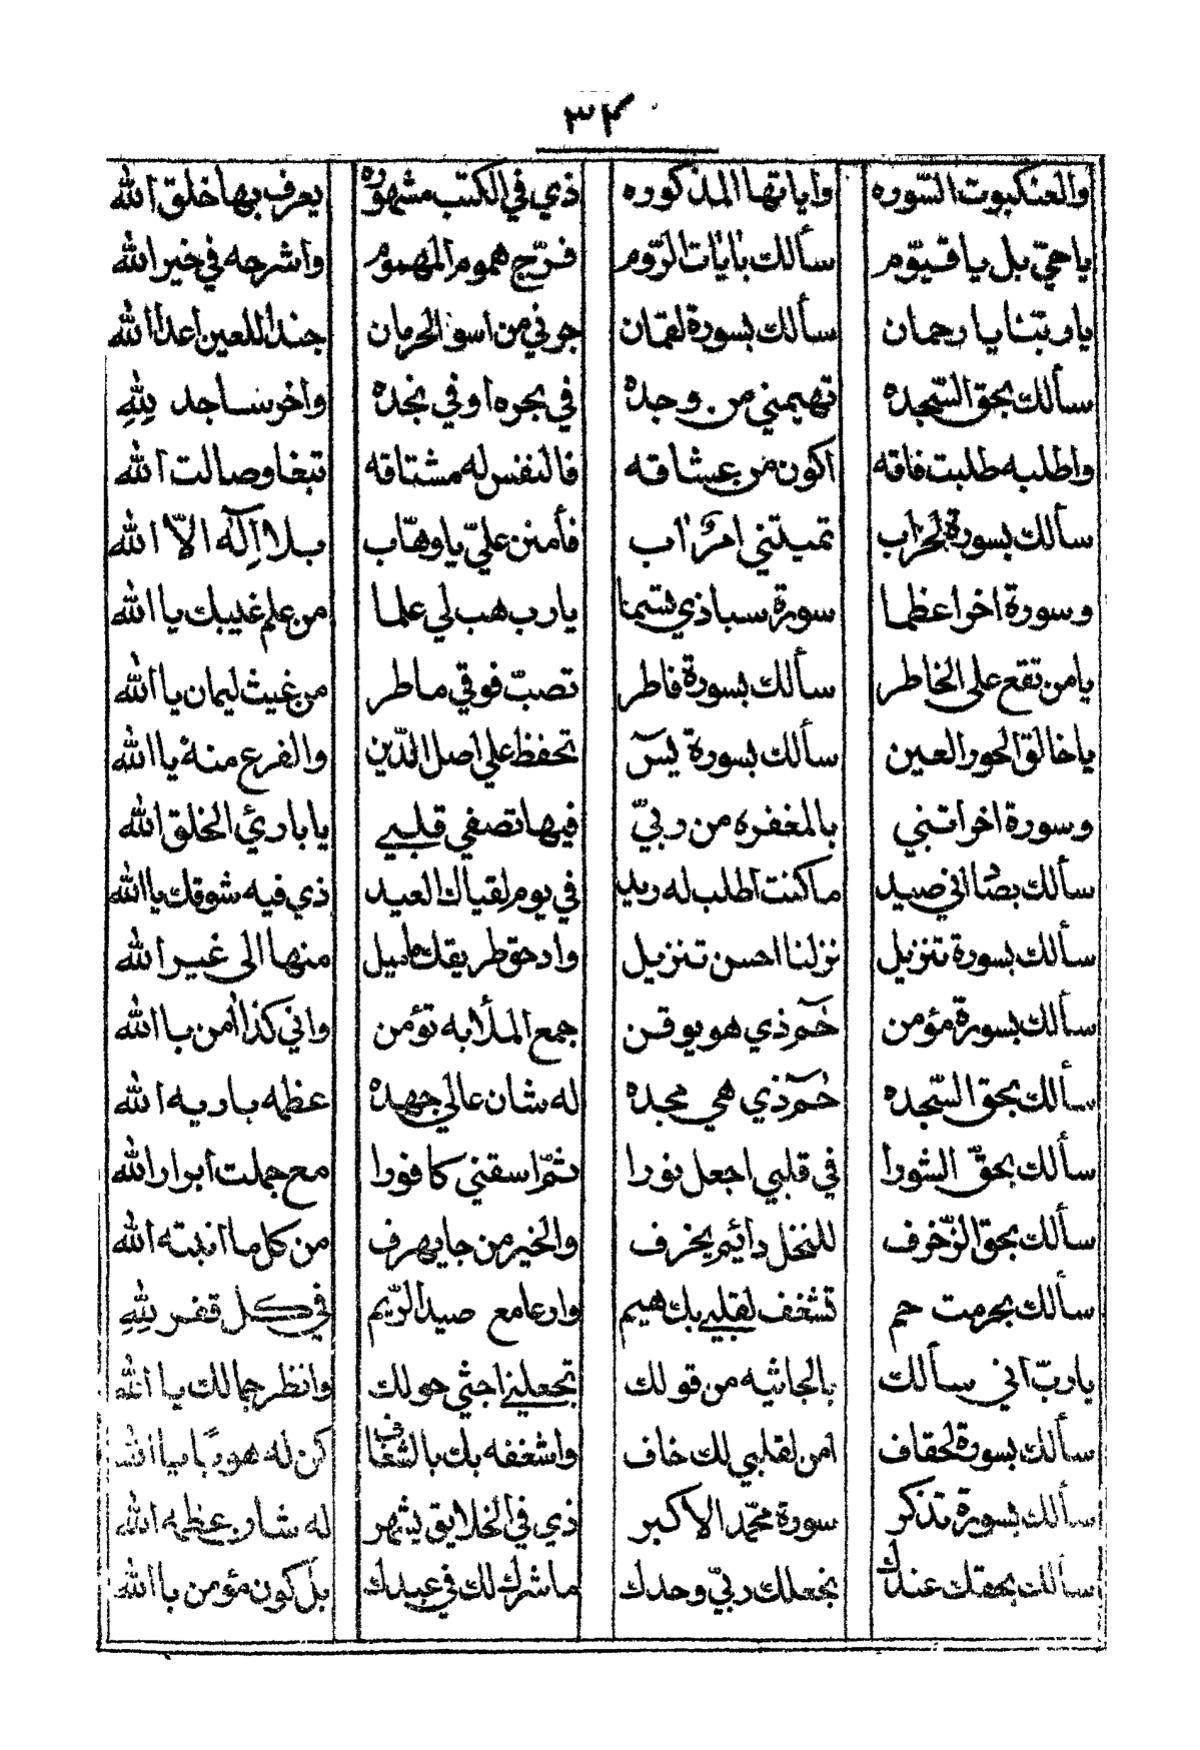 ٣٢
والعنكبوت السّوره وأياتها المذكوره ذي في الكتب مشهوره يعرف بها خلق الله
ياحيّ بل ياقيّوم سألك بأيات الرّوم فرّج هموم المهموم واشرجه في خير الله
ياربّنا يا رحمان سألك بسورة لقمان جوني من اسو الحرمان جند اللعين اعدا الله
سألك بحق السّجده تهيمني من وجده في بحره او في نجده واخر ساجد لِلّهِ
واطلبه طلبت فاقه اكون من عشاقه فالنفس له مشتاقه تبغا وصالت الله
سألك بسورة لحزاب تميتني اوّاب فأمنن عليّ ياوهّاب بلا اِلٓه الاّ الله
وسورة اخرا عظما سورة سبا ذي تسما يارب هب لي علما من علم غيبك يا الله
يامن تقع على الخاطر سألك بسورة فاطر تصبّ فوقي ماطر من غيث ليمان يا الله
ياخالق الحور العين سألك بسورة يٓس تحفظ علي اصل الدّين والفرع منه يا الله
وسورة اخرا تنبي بالمغفره من ربيّ فيها تصفي قلبي يا باري الخلق الله
سألك بصا اني صيد ما كنت اطلب له ريد في يوم لقياك العيد ذي فيه شوقك يا الله
سألك بسورة تنزيل نزلنا احسن تنزيل وادحق طريقك مليل منها الى غير الله
سألك بسورة مؤمن حٓم ذي هو يوقن جمع الملأ به تؤمن واني كذا أمن با الله
سألك بحق السّجده حٓم ذي هي مجده له شان عالي جهده عظمه باريه الله
سألك بحقّ الشورا في قلبي اجعل نورا ثمّ اسقني كافورا مع جملت ابرار الله
سألك بحق الزّخرف للنخل دائم يخرف والخير من جا يهرف من كل ما انبته الله
سألك بحرمت حم تشغف لقلبي بك هيم وارعا مع صيد الرّيم في كل قفر لِلّهِ
ياربّ اني سألك بالجاثيه من قولك تجعلني اجثي حولك وانظر جمالك يا الله
سألك بسورة لحقاف امن لقلبي لك خاف واشغفه بك بالشغاف كن له هوبًا ميا الله
سألك بسورة تذكر سورة محمّد الاكبر ذي في الخلايق يشهر له شان عظمه الله
سألك بحقك عندك نجعلك ربيّ وحدك ما شرك لك في عبدك بل كون مؤمن با الله